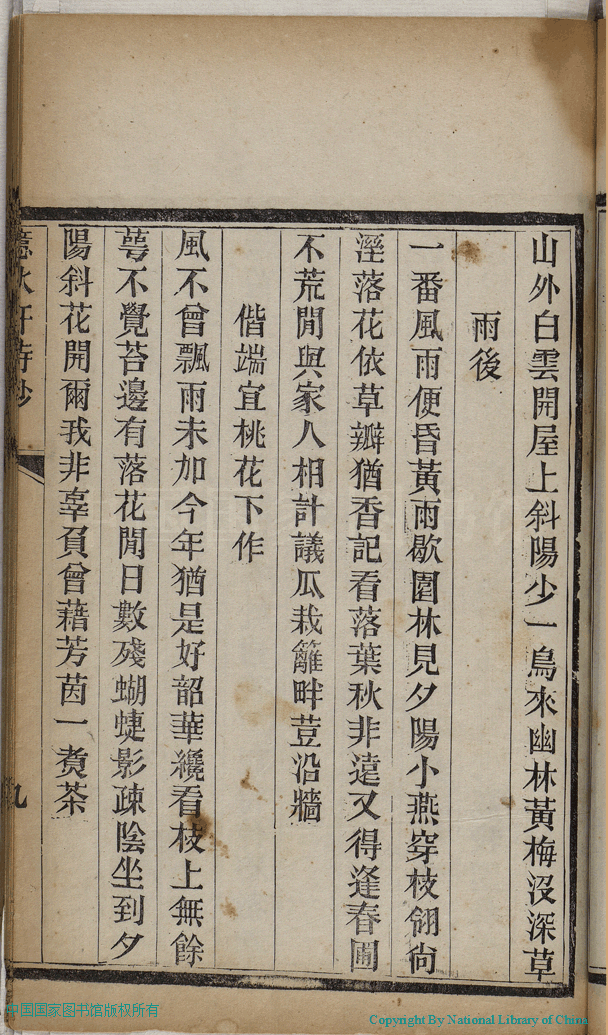 山外白雲開屋上斜陽少一鳥來幽林黃梅沒深草
雨後
一番風雨便昏黃雨歇園林見夕陽小燕穿枝翎尙
溼落花依草瓣猶香記看落葉秋非遠又得逢春圃
不荒閒與家人相計議瓜栽籬畔荳沿牆
偕端宜桃花下作
風不曾飄雨未加今年猶是好韶華纔看枝上無餘
萼不覺苔邊有落花閒日數殘蝴蜨影疎陰坐到夕
陽斜花開爾我非辜負曾藉芳茵一煑茶
九
中国国家图书馆版权所有
Copyright By National Library of China